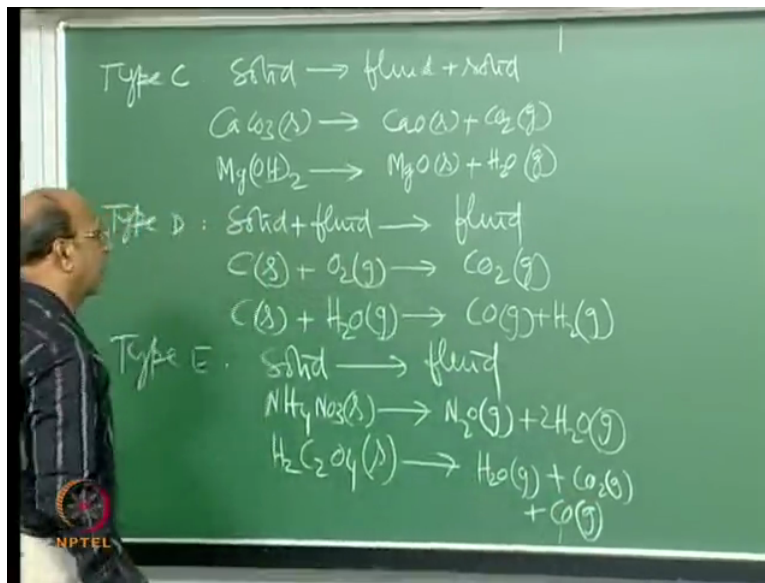 Type C Solid → fluid + solid
CaCO3(s) → CaO(s) + CO2(g)
Mg(OH)2 → MgO(s) + H2O(g)
Type D : Solid + fluid → fluid
C(s) + O2(g) → CO2(g)
C(s) + H2O(g) → CO(g) + H2(g)
Type E . Solid → fluid
NH4NO3(s) → N2O(g) + 2H2O(g)
H2C2O4(s) → H2O(g) + CO2(g)
+ CO(g)
NPTEL